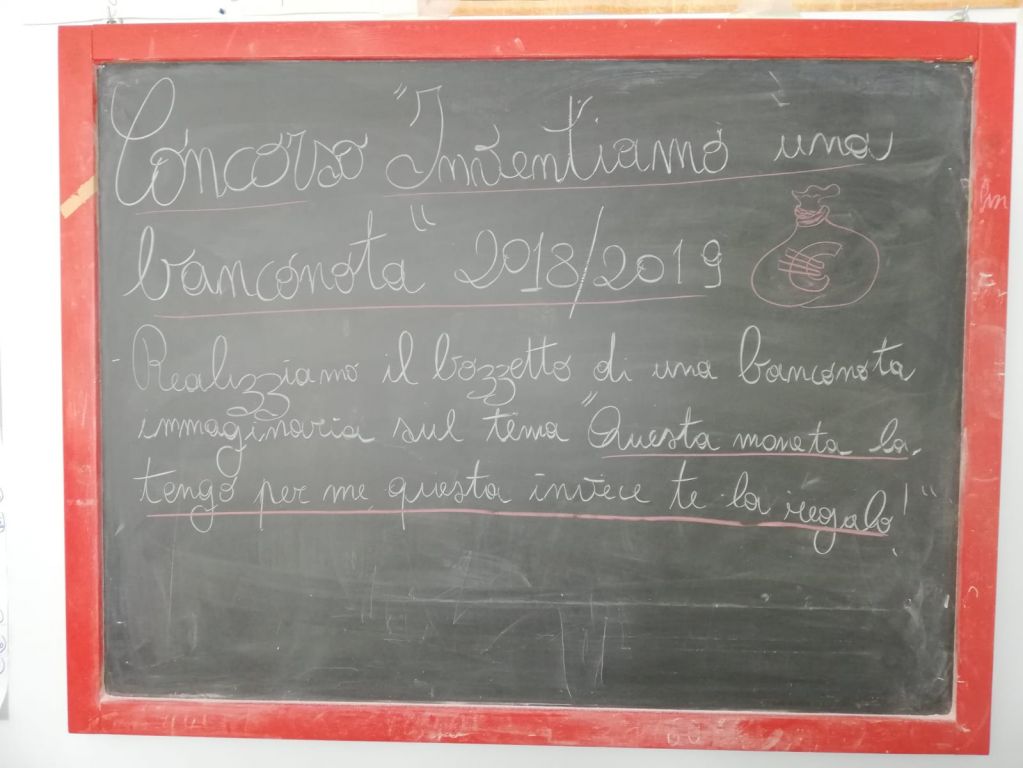 Concorso "Inventiamo una
banconota" 2018/2019
- Realizziamo il bozzetto di una banconota
immaginaria sul tema "Questa moneta la
tengo per me questa invece te la regalo!"
€